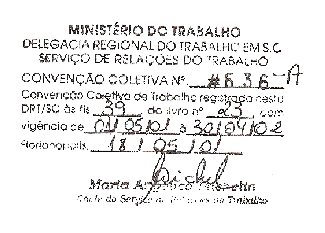 MINISTÉRIO DO TRABALHO
DELEGACIA REGIONAL DO TRABALHO EM S.C
SERVIÇO DE RELAÇÕES DO TRABALHO
CONVENÇÃO COLETIVA Nº
Convenção Coletiva de Trabalho registrada nesta
DRT/SC às fls 39 do livro nº 23, com
vigência de 01/05/01 a 30/04/02
Florianópolis, 18/05/01
Maria
Chefe do Serviço de Relações do Trabalho